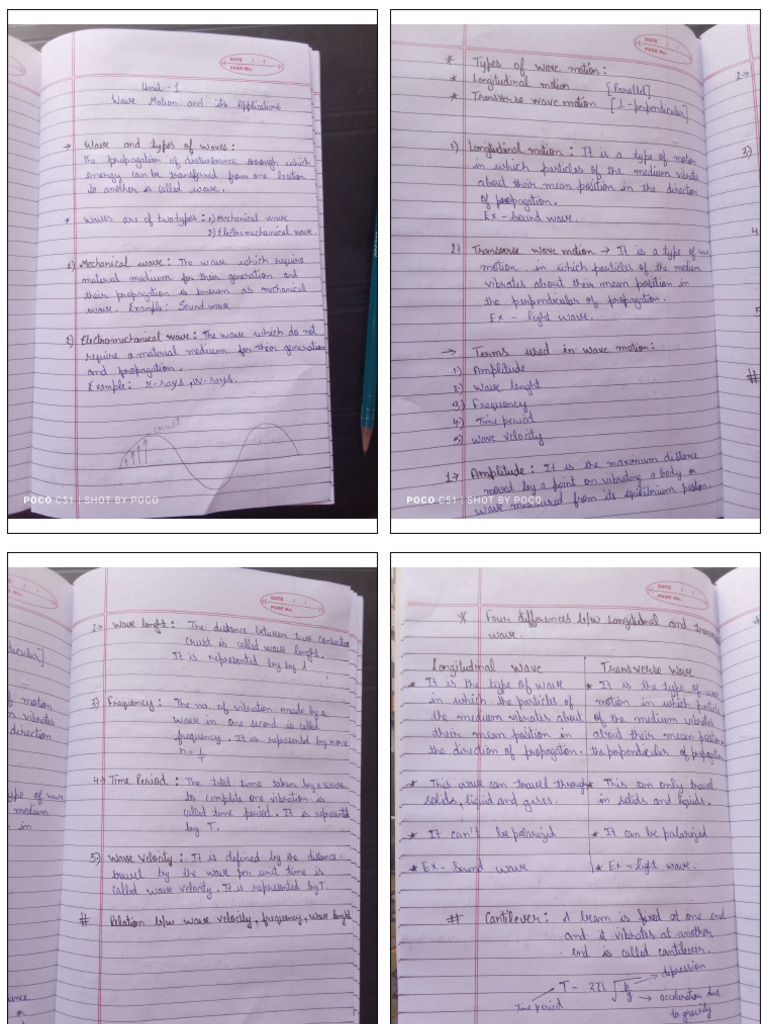 DATE
PAGE No.
Unit - 1
Wave Motion and its Applications
→ Wave and types of waves:
the propagation of disturbance through which
energy can be transferred from one location
to another is called wave.
* waves are of two types: 1) Mechanical wave
2) Electromechanical wave.
1) Mechanical wave: The wave which require
material medium for their generation and
their propagation is known as mechanical
wave. Example: Sound wave
2) Electromechanical wave: The wave which do not
require a material medium for their generation
and propagation.
Example: x-rays, uv-rays.
crust
POCO C51 | SHOT BY POCO
DATE
PAGE No.
* Types of wave motion:
* Longitudinal motion [Parallel]
* Transverse wave motion [⊥-perpendicular]
1) Longitudinal motion: It is a type of motion
in which particles of the medium vibrates
about their mean position in the direction
of propagation.
Ex - sound wave.
2) Transverse wave motion → It is a type of wave
motion in which particles of the medium
vibrates about their mean position in
the perpendicular of propagation.
Ex - light wave.
→ Terms used in wave motion:
1) Amplitude
2) Wave lenght
3) Frequency
4) Time period
5) Wave velocity
1→ Amplitude: It is the maximum distance
moved by a point on vibrating a body or
wave measured from its equilibrium
POCO C51 | SHOT BY POCO
2→
3)
4
5
#
DATE
PAGE No.
Wave lenght: The distance between two
crust is called wave lenght.
It is represented by by λ
3) Frequency: The no. of vibration made by a
wave in one second is called
frequency. It is represented by
n = 1/T
4→ Time Period: The total time taken by a wave
to complete one vibration is
called time period. It is represented
by T.
5) Wave Velocity: It is defined by the distance
travel by the wave per unit time is
called wave velocity. It is represented by
# Relation b/w wave velocity, frequency, wave lenght
dicular]
motion
vibrates
direction
ype of wave
medium
in
ance
or
DATE
PAGE No.
* Four differences b/w Longitudinal and
wave.
Longitudinal Wave
Transverse Wave
* It is the type of wave
in which the particles of
the medium vibrates about
their mean position in
the direction of propagation.
* It is the type of wave
motion in which particle
of the medium vibrates
about their mean position
the perpendicular of propagation
* This wave can travel through
solids, liquid and gases.
* This can only travel
in solids and liquids.
* It can't be polarized
* It can be polarized
* Ex - Sound wave
* Ex - light wave.
## Cantilever: A beam is fixed at one end
and it vibrates at another
end is called cantilever.
depression
acceleration due
to gravity
Time period